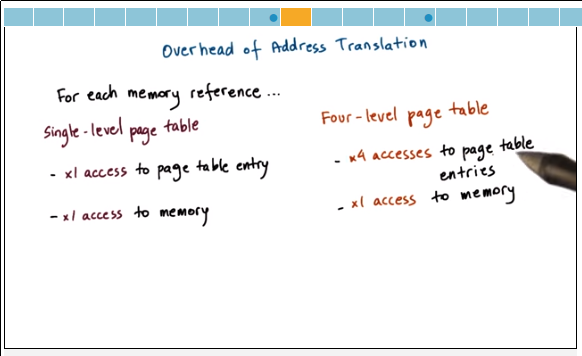 Overhead of Address Translation
For each memory reference ...
Single-level page table
- x1 access to page table entry
- x1 access to memory
Four-level page table
- x4 accesses to page table
entries
- x1 access to memory